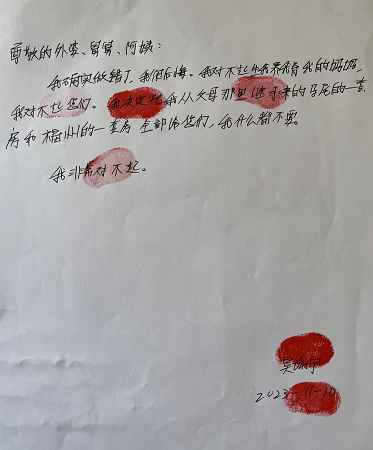 尊敬的外婆、舅舅、阿姨：
我确实做错了，我很后悔。我对不起生我养育我的妈妈，
我对不起您们。我决定把我从父母那里继承来的马尾的一套
房和福州的一套房全部给您们，我什么都不要。
我非常对不起。
2023